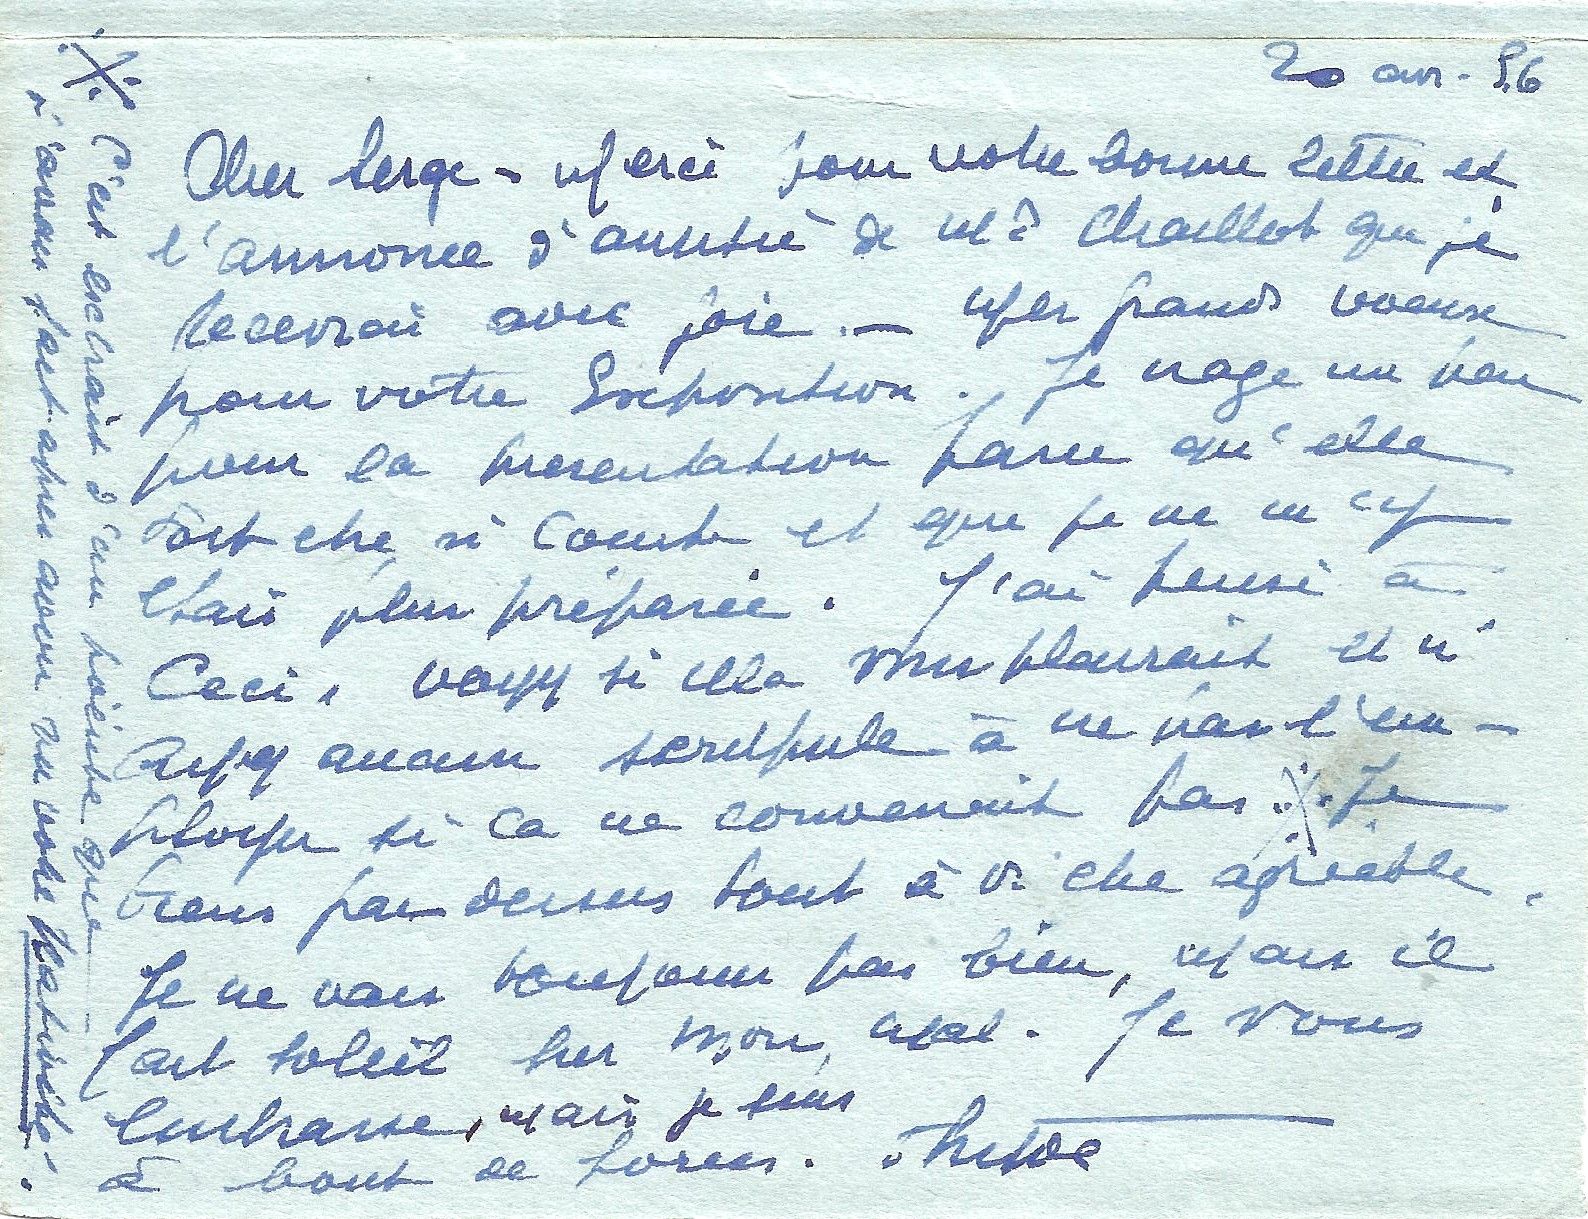 20 avr. 56
Cher Serge - Merci pour votre bonne lettre et
l'annonce d'amitié de Md Chaillot que je
recevrai avec joie. - Mes grands voeux
pour votre Exposition. Je nage un peu
pour la présentation parce qu'elle
doit être si courte et que je ne m'y
étais plus préparée. J'ai pensé à
Ceci, voyez si cela vous plairait et n'
ayez aucun scrupule à ne pas l'em-
ployer si ça ne convenait pas. X Je
tiens par dessus tout à v. être agréable.
Je ne vais toujours pas bien, mais il
fait soleil sur mon mal. Je vous
embrasse, mais je suis
à bout de forces.
X C'est extrait d'un poème que
j'avais fait après avoir vu votre Nativité.